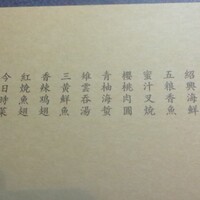 紹興海鮮
五糧香魚
蜜汁叉燒
櫻桃肉圓
青柚海蜇
雉雲吞湯
三黃鮮魚
香辣鳮翅
紅燒魚翅
今日時菜